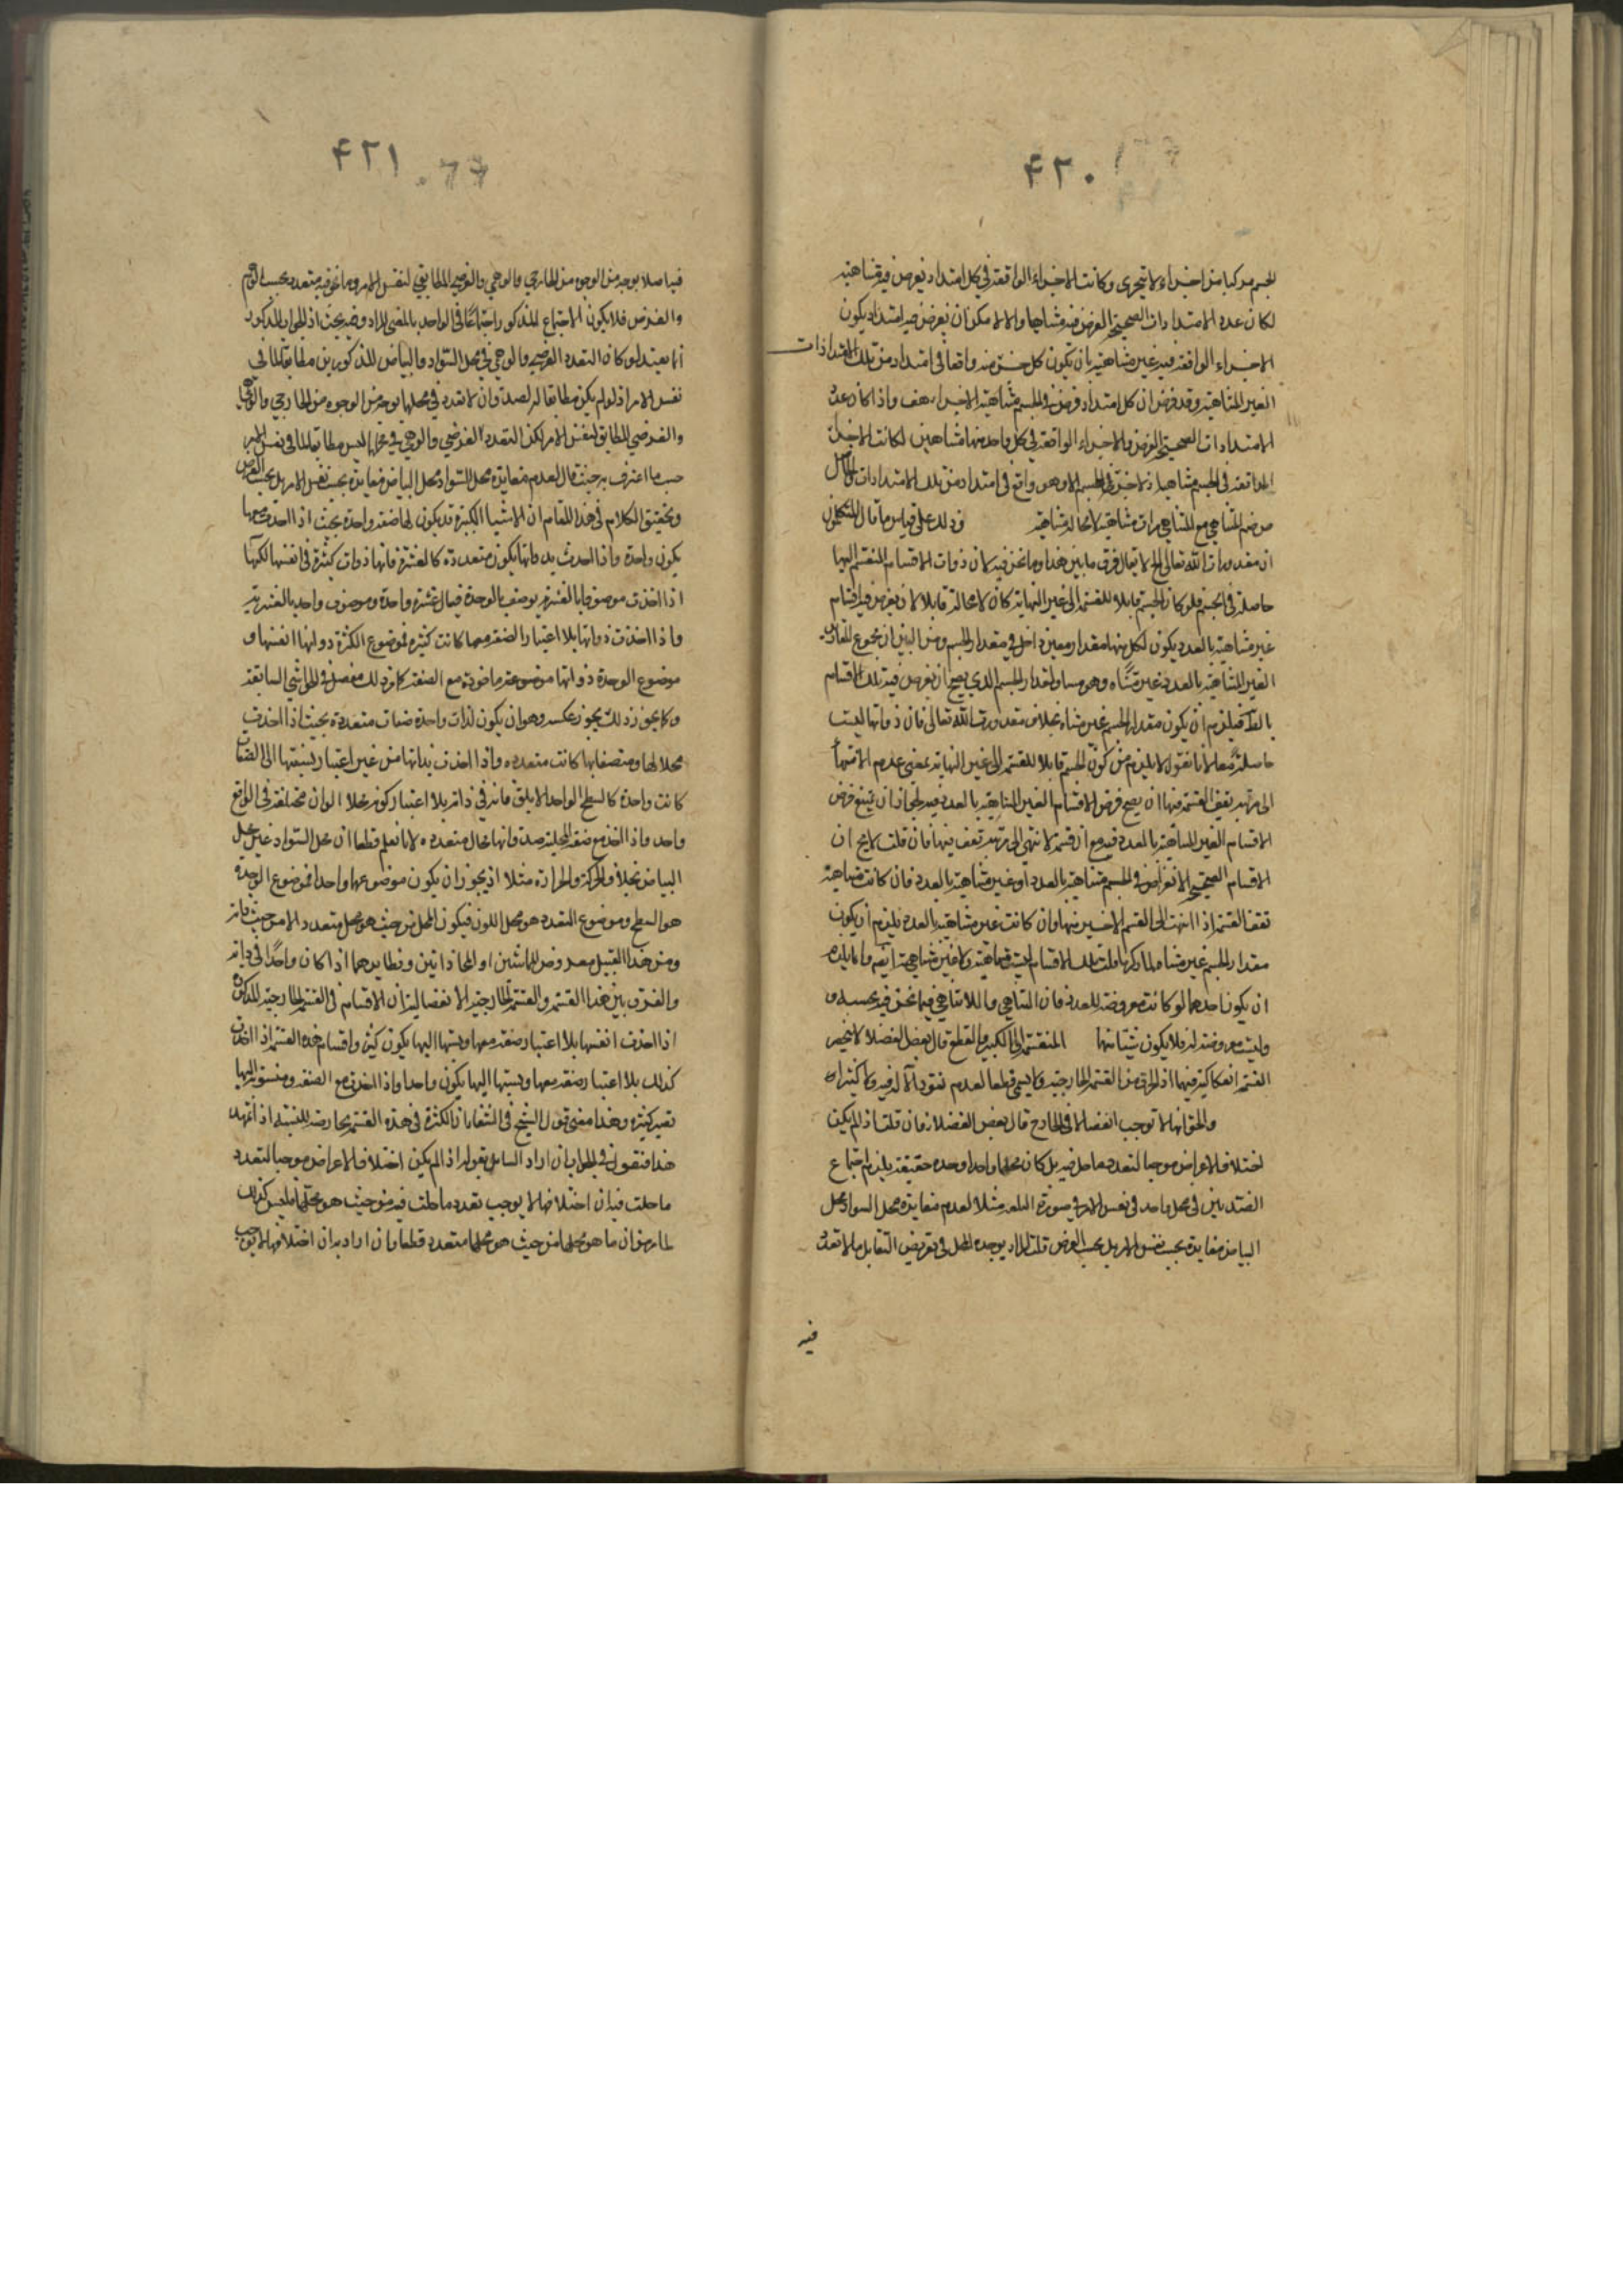 ۴۲۰
الجسم مركبا من اجزاء لا تتجزى وكانت الاجزاء الواقعة في كل امتداد يفرض فيه متناهية
لكان عدد الامتدادات الصحيحة الفرض فيه متناهيا والا لامكن ان يفرض فيه امتداد يكون
الاجزاء الواقعة فيه غير متناهية بان يكون كل جزء منه واقعا في امتداد من تلك الامتدادات
الغير المتناهية وقد فرض ان كل امتداد فرض في الجسم متناهية الاجزاء هف واذا كان عدد
الامتدادات الصحيحة الفرض والاجزاء الواقعة في كل واحد منها متناهيين لكانت الاجزاء
الواقعة في الجسم متناهيا اذ لا جزء في الجسم الا وهو واقع في امتداد من تلك الامتدادات
من ضم المتناهي مع المتناهي مرات متناهية لا محالة متناهية وذلك على قياس ما قال المتكلمون
ان مقدورات الله تعالى الخ لا يقال فرق ما بين هذا وما نحن فيه لان ذوات الاقسام المنقسم اليها
حاصلة في الجسم فلو كان الجسم قابلا للقسمة الى غير النهاية كان لا محالة قابلا لان يفرض فيه اقسام
غير متناهية بالعدد يكون لكل منها مقدار معين داخل في مقدار الجسم ومن البين ان مجموع المقادير
الغير المتناهية بالعدد غير متناه وهو مساو لمقدار الجسم الذي يصح ان يفرض فيه تلك الاقسام
فيلزم ان يكون مقدار الجسم غير متناه بخلاف مقدورات الله تعالى فان ذواتها ليست
حاصلة معا لانا نقول لا يلزم من كون الجسم قابلا للقسمة الى غير النهاية بمعنى عدم الانتهاء
الى مرتبة يقف القسمة فيها ان يصح فرض الاقسام الغير المتناهية بالعدد فيه لجواز ان يمتنع فرض
الاقسام الغير المتناهية بالعدد فيه مع ان قسمته لا تنتهي الى مرتبة تقف فيها فان قلت لا يخ ان
الاقسام الصحيحة الانفراض في الجسم متناهية بالعدد او غير متناهية بالعدد فان كانت متناهية
تقف القسمة اذا انتهت الى القسم الاخير منها وان كانت غير متناهية بالعدد يلزم ان يكون
مقدار الجسم غير متناه لما ذكرتم قلت تلك الاقسام ليست متناهية ولا غير متناهية ايضا وانما يلزم
ان يكون احدهما لو كانت معروضة للعدد فان التناهي واللاتناهي فيما نحن فيه بحسبه و
وليست معروضة له فلا يكون شيئا منهما المنقسمة الى الكسر والقطع قال بعض الفضلا لا ينحصر
القسمة انفكاكية فيهما اذ الخرق من القسمة الخارجية ولا يسمى قطعا لعدم نفوذ الآلة فيه ولا كسرا
والحق انها لا توجب انفصالا في الخارج قال بعض الفضلا فان قلت اذ لم يكن
اختلاف الاعراض موجبا لتعدد ما حل فيه بل كان محلها واحدا وحدة حقيقة يلزم اجتماع
الضدين في محل واحد في نفس الامر في صورة البلقة مثلا لعدم مغايرة محل السواد لمحل
البياض مغايرة بحسب نفس الامر بل بحسب الفرض قلت المراد بوحدة المحل في تعريف التقابل ما لا تعدد
فيه
۴۲۱
فيه اصلا بوجه من الوجوه من الخارجي والوهمي والفرضي المطابقي لنفس الامر وما نحن فيه متعدد بحسب الوهم
والفرض فلا يكون الاجتماع المذكور اجتماعا في الواحد بالمعنى المراد وفيه بحث اذ الجواب المذكور
انما يفيد لو كان التعدد الفرضي والوهمي في محل السواد والبياض المذكورين مطابقا لما في
نفس الامر اذ لو لم يكن مطابقا له لصدق ان لا تعدد في محلهما بوجه من الوجوه من الخارجي والوهمي
والفرضي المطابق لنفس الامر لكن التعدد الفرضي والوهمي في محلهما ليس مطابقا لما في نفس الامر
حسب ما اعترف به حيث قال لعدم مغايرة محل السواد لمحل البياض مغايرة بحسب نفس الامر بل بحسب الفرض
وتحقيق الكلام في هذا المقام ان الاشياء الكثيرة قد يكون لها صفة واحدة بحيث اذا اخذت معها
يكون واحدة واذا اخذت بدونها يكون متعددة كالعشرة فانها ذوات كثيرة في انفسها لكنها
اذا اخذت موصوفة بالعشرية يوصف بالوحدة فيقال عشرة واحدة وموصوف واحد بالعشرية
واذا اخذت ذواتها بلا اعتبار الصفة معها كانت كثيرة فموضوع الكثرة ذواتها انفسها و
موضوع الوحدة ذواتها موضوعة ماخوذة مع الصفة كما مر ذلك مفصلا في الحواشي السابقة
وكما يجوز ذلك يجوز عكسه وهو ان يكون لذات واحدة صفات متعددة بحيث اذا اخذت
محلا لها ومتصفا بها كانت متعددة واذا اخذت بذاتها من غير اعتبار نسبتها الى الصفات
كانت واحدة كالسطح الواحد الابلق فانه في ذاته بلا اعتبار كونه محلا لالوان مختلفة في الواقع
واحد واذا اخذ مع صفة المحلية صدق انها محال متعددة لانا نعلم قطعا ان محل السواد غير محل
البياض بخلاف الحركة والحرارة مثلا اذ يجوز ان يكون موضوعهما واحدا فموضوع الوحدة
هو السطح وموضوع التعدد هو محل اللون فيكون المحل من حيث هو محل متعدد لا من حيث ذاته
ومن هذا القبيل معروض المماستين او المحاذاتين ونظايرهما اذا كان واحدا في ذاته
والفرق بين هذا القسمة والقسمة الخارجية الانفصالية ان الاقسام في القسمة الخارجية المذكورة
اذا اخذت انفسها بلا اعتبار صفة معها ونسبتها اليها يكون كثيرة واقسام هذه القسمة اذا اخذت
كذلك بلا اعتبار صفة معها ونسبتها اليها يكون واحدا واذا اخذت مع الصفة ومنسوبة اليها
تصير كثيرة وهذا معنى قول الشيخ في الشفا ان الكثرة في هذه القسمة عارضة للنسبة اذا تمهد
هذا فنقول في الجواب ان اراد السائل بقوله اذ لم يكن اختلاف الاعراض موجبا لتعدد
ما حلت فيه ان اختلافها لا يوجب تعدد ما حلت فيه من حيث هو محلها فليس كذلك
لما مر من ان ما هو محلها من حيث هو محلها متعدد قطعا وان اراد به ان اختلافها لا يوجب